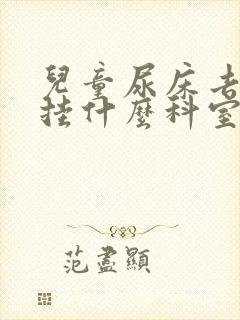 兒童尿床去
挂什麼科室
范盡顯